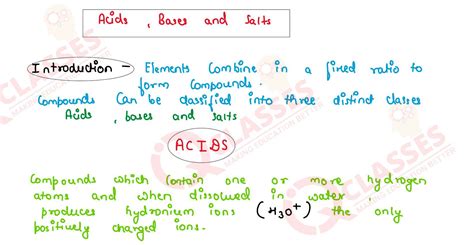 Acids, Bases and Salts
Introduction - Elements Combine in a fixed ratio to
form Compounds.
Compounds Can be classified into three distinct classes
Acids, bases and salts
ACIDS
Compounds which Contain one or more hydrogen
atoms and when dissolved in water
produces hydronium ions (H3O+) the only
positively charged ions.